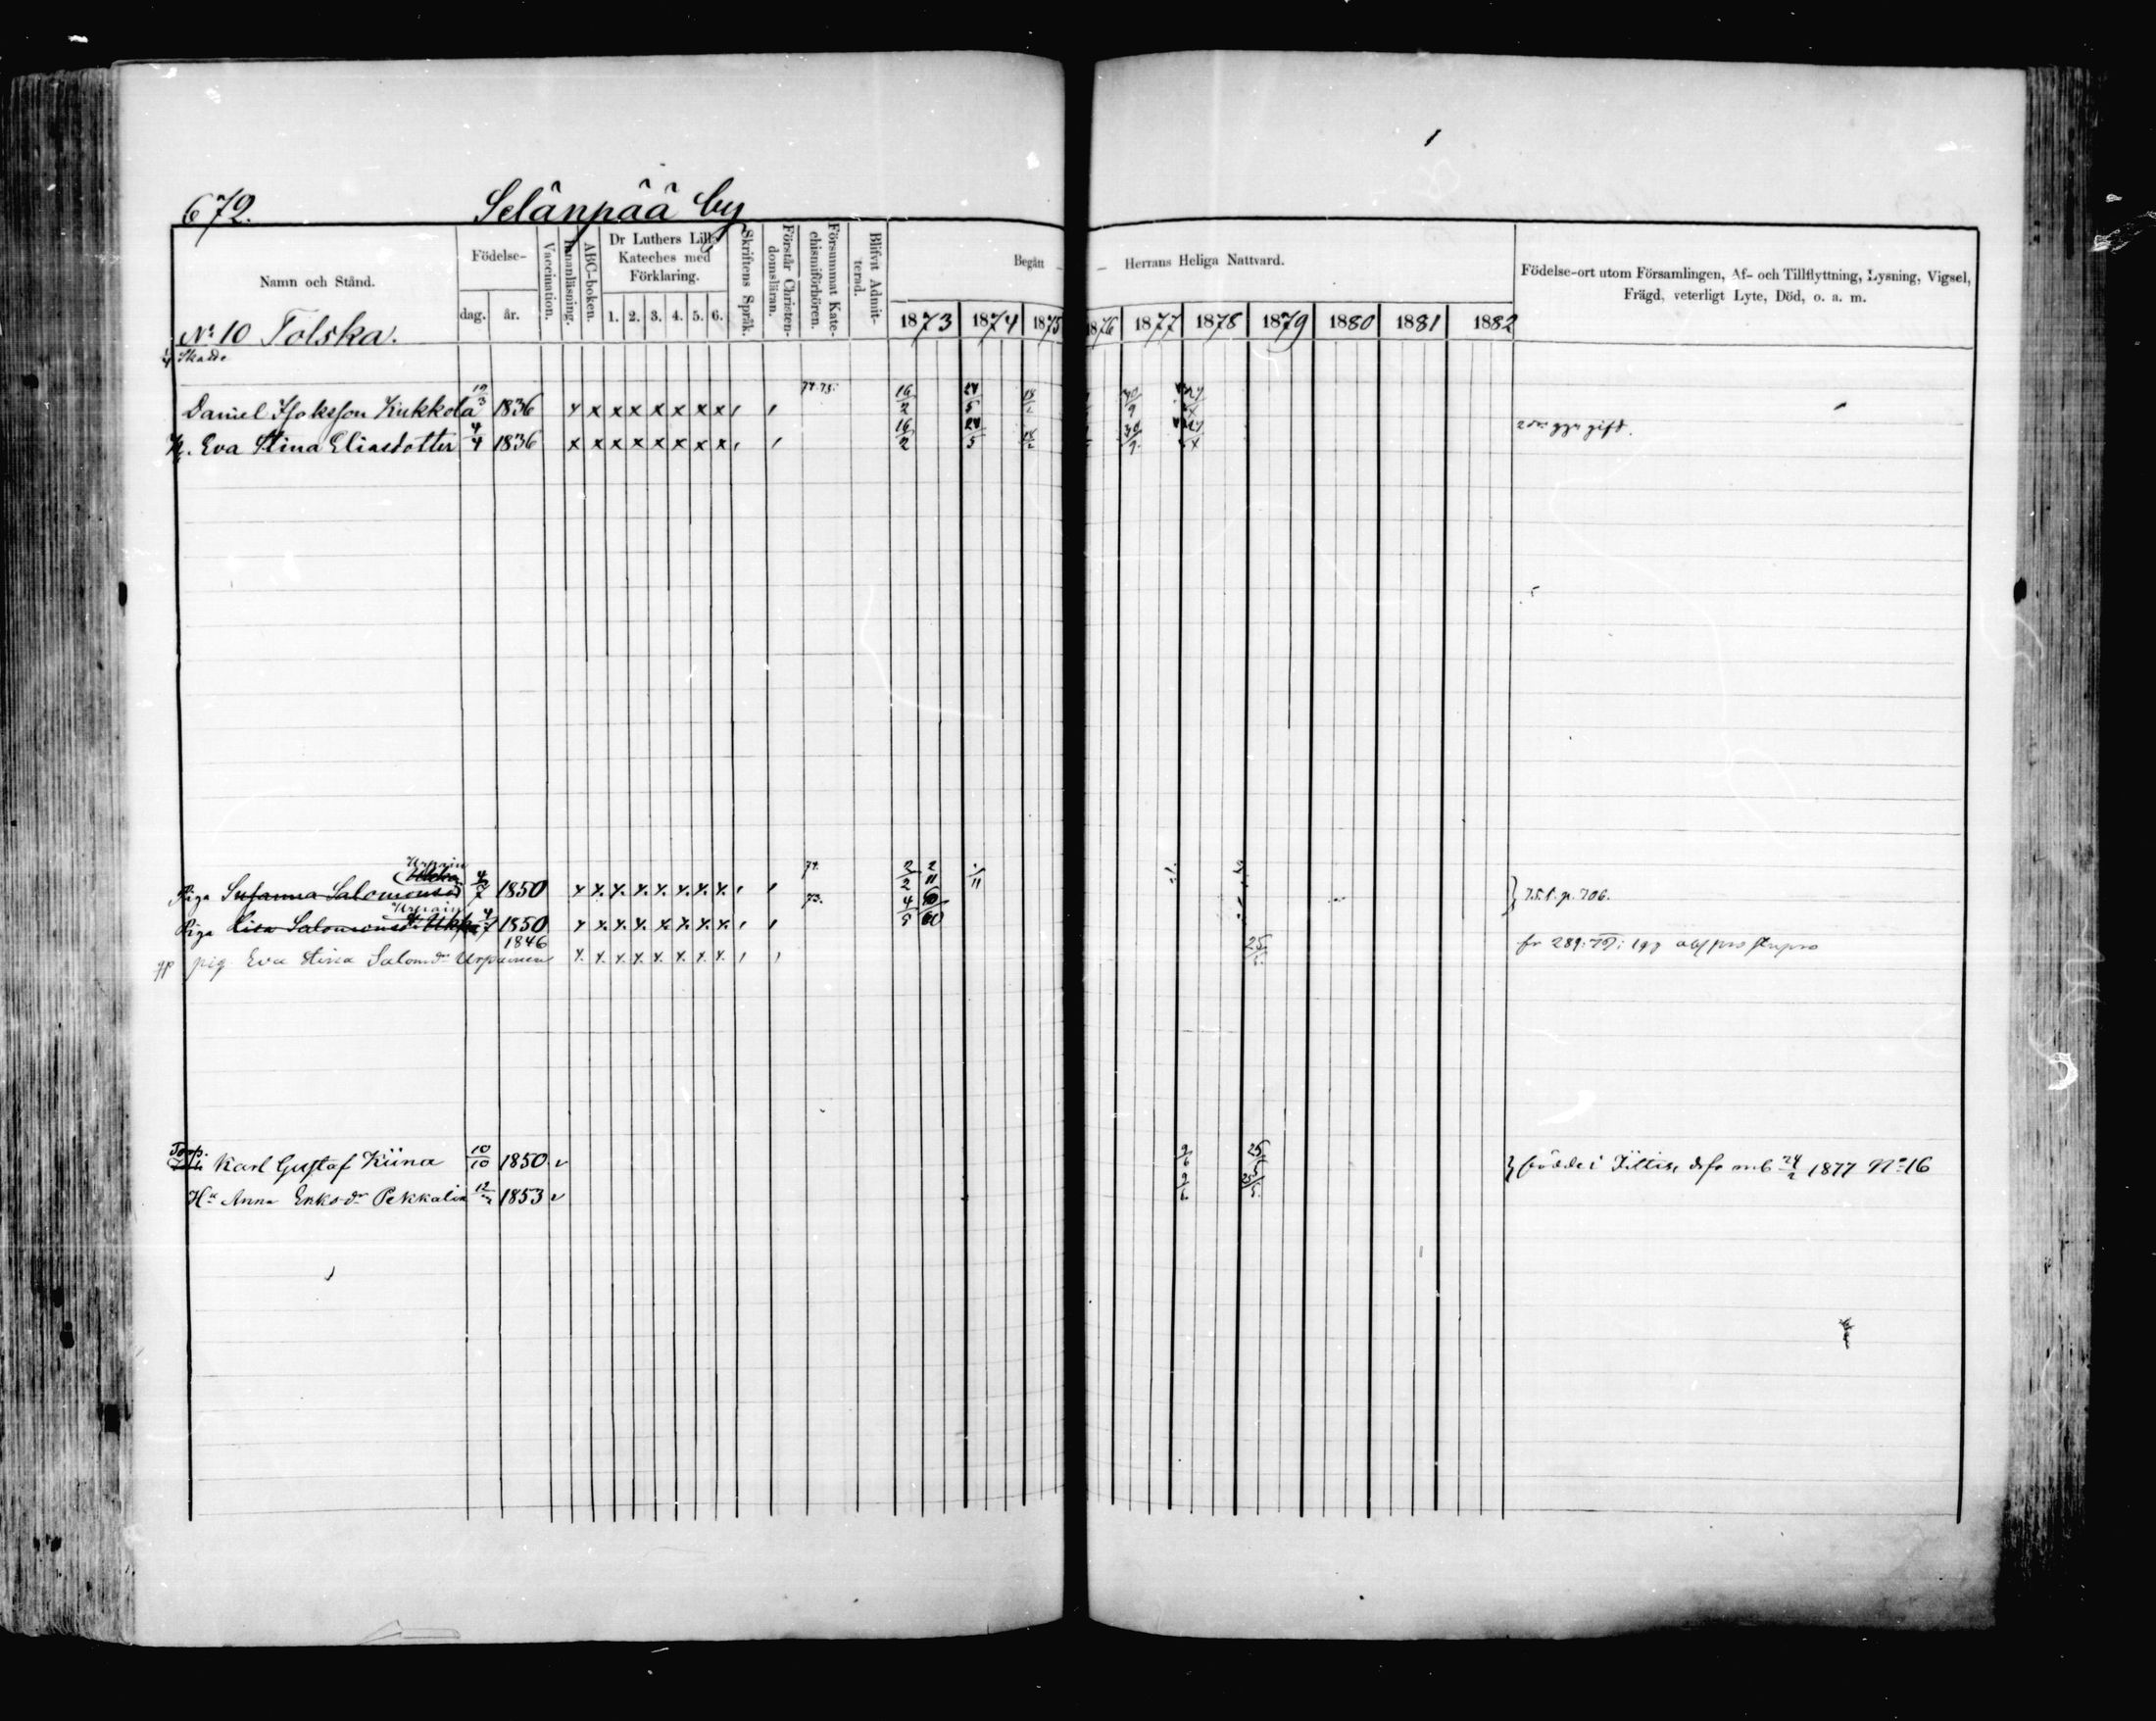 672. Selänpää by
Namn och Stånd.
Födelse-
dag. år.
Vaccination.
Innanläsning.
ABC-boken.
Dr Luthers Lilla Kateches med Förklaring.
1. 2. 3. 4. 5. 6.
Skriftens Språk.
Förstår Christen-domsläran.
Försummat Kate-chismiförhören.
Blifvit Admit-terad.
Begått — — Herrans Heliga Nattvard.
1873 1874 1875 1876 1877 1878 1879 1880 1881 1882
Födelse-ort utom Församlingen, Af- och Tillflyttning, Lysning, Vigsel,
Frägd, veterligt Lyte, Död, o. a. m.
No 10 Tolska.
1/4 Skatte
Daniel Isaksson Kukkola 19/3 1836 x x x x x x x x 16/2 24/5 30/9
H. Eva Stina Eliasdotter 4/4 1836 x x x x x x x x 16/2 24/5 30/9 gift.
Urpain
Piga Susanna Salomonsd 4/7 1850 x x x x x x x x 74. 2/2 2/11 /11
Urpain
Piga Lisa Salomonsd Ukko 4/7 1850 x x x x x x x x 73. 4/5 } 75. f. p. 706.
pig Eva Stina Salomdr Urpainen 1846 x x x x x x x x 25/5 fr 289:
Karl Gustaf Kiina 10/10 1850 v 9/6 25/5 } födde i Jittis, 24/2 1877 No 16
Hu Anna Eriksdr Pekkalin 1853 v 9/6 25/5